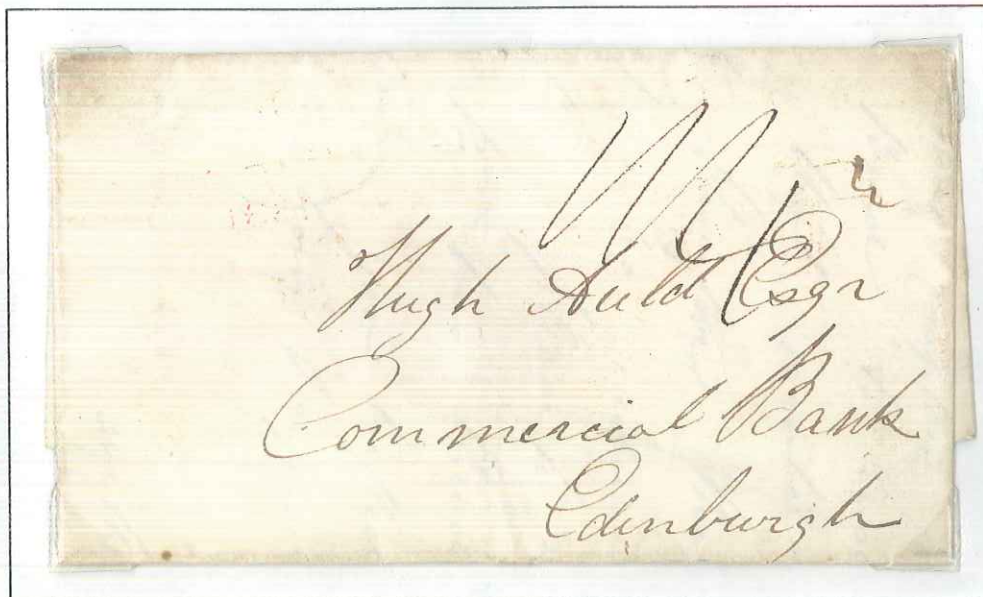 Hugh Auld Esqr
Commercial Bank
Edinburgh